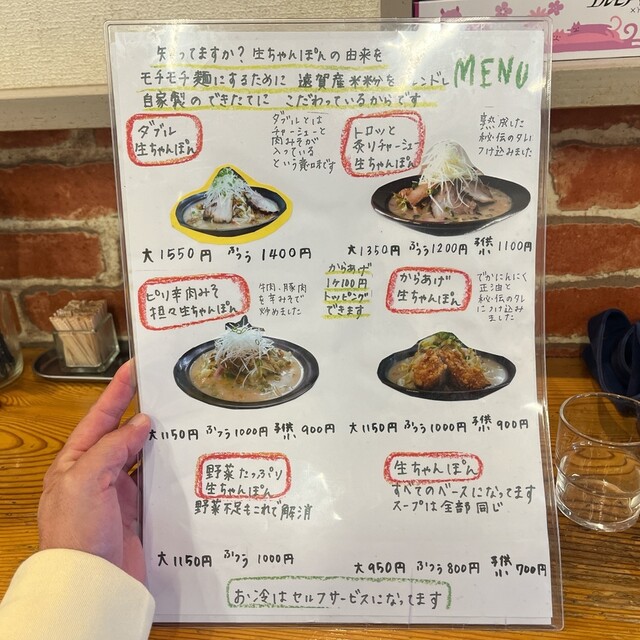 知ってますか？生ちゃんぽんの由来を
モチモチ麺にするために 遠賀産米粉をブレンドし
自家製のできたてに こだわっているからです
MENU
ダブル
生ちゃんぽん
ダブルとは
チャーシューと
肉みそが
入っている
という意味です
大1550円 ふつう1400円
トロッと
炙りチャーシュー
生ちゃんぽん
熟成した
秘伝のタレに
つけ込みました
大1350円 ふつう1200円 子供小1100円
ピリ辛肉みそ
担々生ちゃんぽん
牛肉・豚肉
を辛みそで
炒めました
大1150円 ふつう1000円 子供小900円
からあげ
1ケ100円
トッピング
できます
からあげ
生ちゃんぽん
でかにんにく
正油と
秘伝のタレ
につけ込み
ました
大1150円 ふつう1000円 子供小900円
野菜たっぷり
生ちゃんぽん
野菜不足もこれで解消
大1150円 ふつう1000円
生ちゃんぽん
すべてのベースになってます
スープは全部同じ
大950円 ふつう800円 子供小700円
お冷はセルフサービスになってます